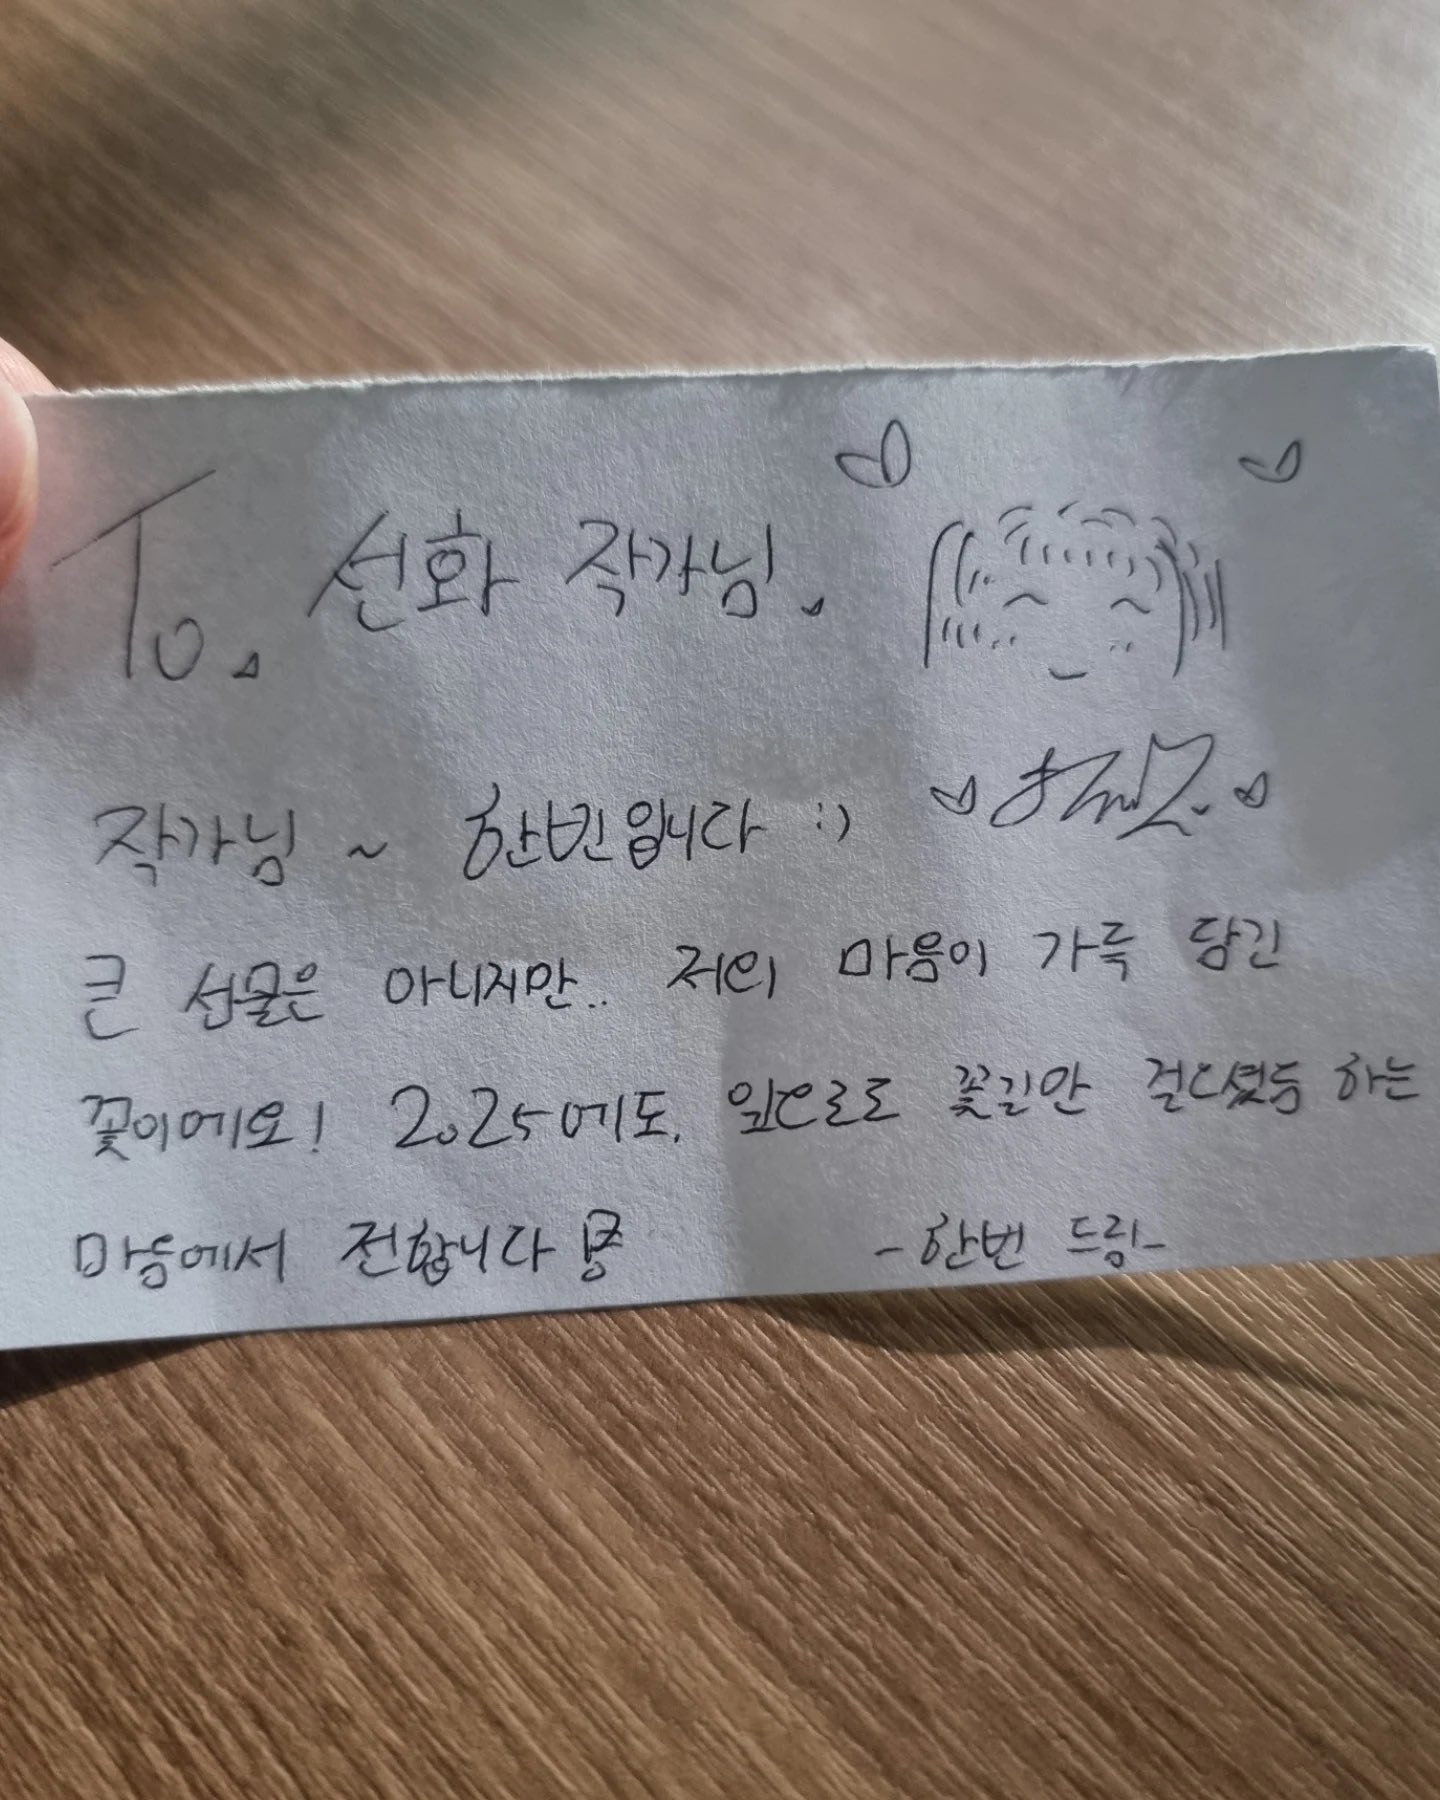 To. 선화 작가님.
작가님 ~ 한빈입니다 :)
큰 선물은 아니지만.. 저의 마음이 가득 담긴
꽃이에요! 2025에도, 앞으로도 꽃길만 걸으셨음 하는
마음에서 전합니다
-한빈 드림-